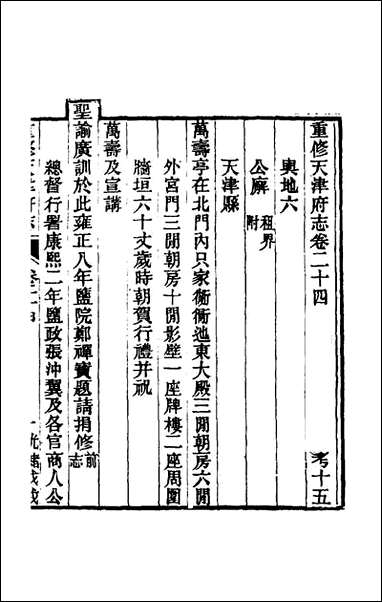 重修天津府志卷二十四 考十五
輿地六
公廨 租界附
天津縣
萬壽亭在北門內只家衚衕迤東大殿三間朝房六間
外宮門三間朝房十間影壁一座牌樓二座周圍
牆垣六十丈歲時朝賀行禮并祝
萬壽及宣講
聖諭廣訓於此雍正八年鹽院鄭禪寶題請捐修前志
總督行署康熙二年鹽政張沖翼及各官商人公